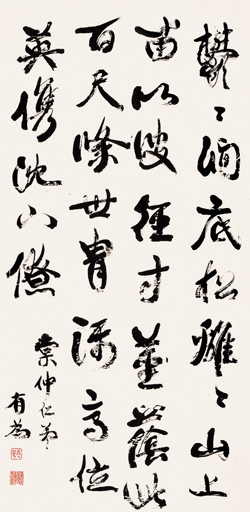 鬱〻澗底松離〻山上
苗以彼徑寸莖蔭此
百尺條世胄躡高位
英俊沈下僚
棠仲仁弟
有為